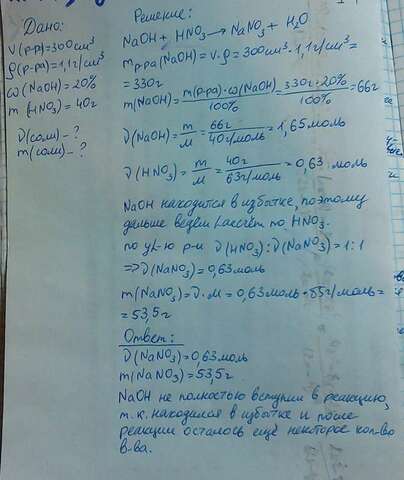 Дано:
V(р-ра)=300см³
ρ(р-ра)=1,1г/см³
ω(NaOH)=20%
m(HNO₃)=40г
ν(соли)-?
m(соли)-?
Решение:
NaOH + HNO₃ → NaNO₃ + H₂O
m р-ра(NaOH)=V·ρ=300см³·1,1г/см³=
=330г
m(NaOH)=m(р-ра)·ω(NaOH)/100%=330г·20%/100%=66г
ν(NaOH)=m/M=66г/40г/моль=1,65моль
ν(HNO₃)=m/M=40г/63г/моль=0,63 моль
NaOH находится в избытке, поэтому
дальше ведем рассчёт по HNO₃.
по ур-ю р-и ν(HNO₃):ν(NaNO₃)=1:1
=>ν(NaNO₃)=0,63моль
m(NaNO₃)=ν·M=0,63моль·85г/моль=
=53,5г
Ответ:
ν(NaNO₃)=0,63моль
m(NaNO₃)=53,5г
NaOH не полностью вступил в реакцию,
т.к. находился в избытке и после
реакции осталось ещё некоторое кол-во
в-ва.